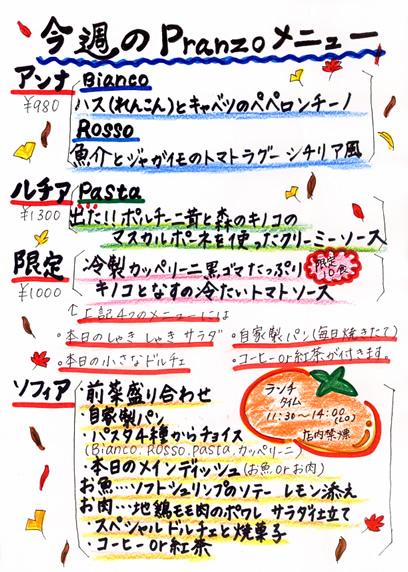 今週のPranzoメニュー
アンナ Bianco
¥980
ハス(れんこん)とキャベツのペペロンチーノ
Rosso
魚介とジャガイモのトマトラグー シチリア風
ルチア Pasta
¥1300
出た!!ポルチーニ茸と森のキノコの
マスカルポーネを使ったクリーミーソース
限定
¥1000
冷製カッペリーニ黒ゴマたっぷり
キノコとなすの冷たいトマトソース
限定
10食
↑上記4つのメニューには
・本日のしゃきしゃきサラダ ・自家製パン(毎日焼きたて)
・本日の小さなドルチェ ・コーヒーor紅茶が付きます。
ソフィア
・前菜盛り合わせ
・自家製パン
・パスタ4種からチョイス
(Bianco.Rosso.pasta.カッペリーニ)
・本日のメインディッシュ(お魚orお肉)
お魚…ソフトシュリンプのソテー レモン添え
お肉…地鶏モモ肉のポワレ サラダ仕立て
・スペシャルドルチェと焼菓子
・コーヒーor紅茶
ランチ
タイム
11:30~14:00
(LO)
店内禁煙